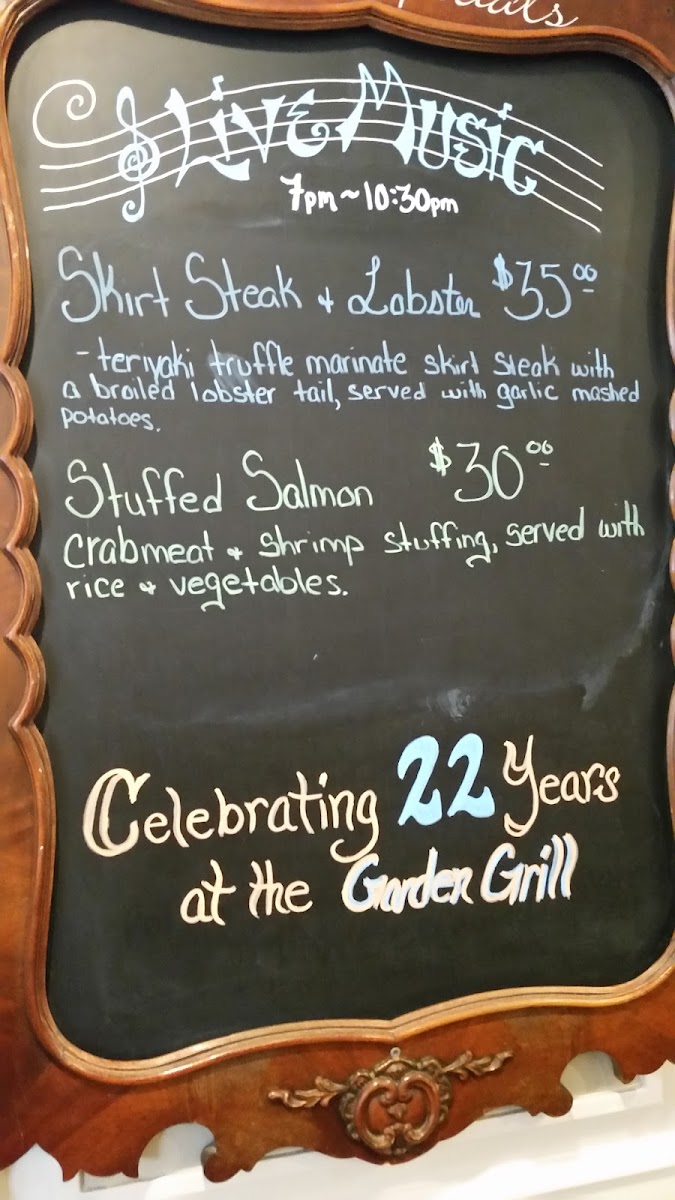 Live Music
7pm ~ 10:30pm
Skirt Steak + Lobster $35.00
- teriyaki truffle marinate skirt steak with
a broiled lobster tail, served with garlic mashed
potatoes.
Stuffed Salmon $30.00
crabmeat + shrimp stuffing, served with
rice + vegetables.
Celebrating 22 Years
at the Garden Grill